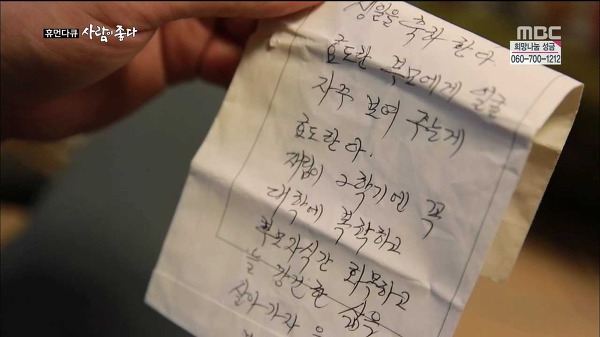 휴먼다큐 사람이 좋다
MBC
희망나눔 성금
060-700-1212
생일을 축하 한다
효도란 부모에게 얼굴
자주 보여 주는게
효도란다.
재림이 2학기엔 꼭
대학에 복학하고
부모자식간 화목하고
늘 강건한 삶을
살아가자